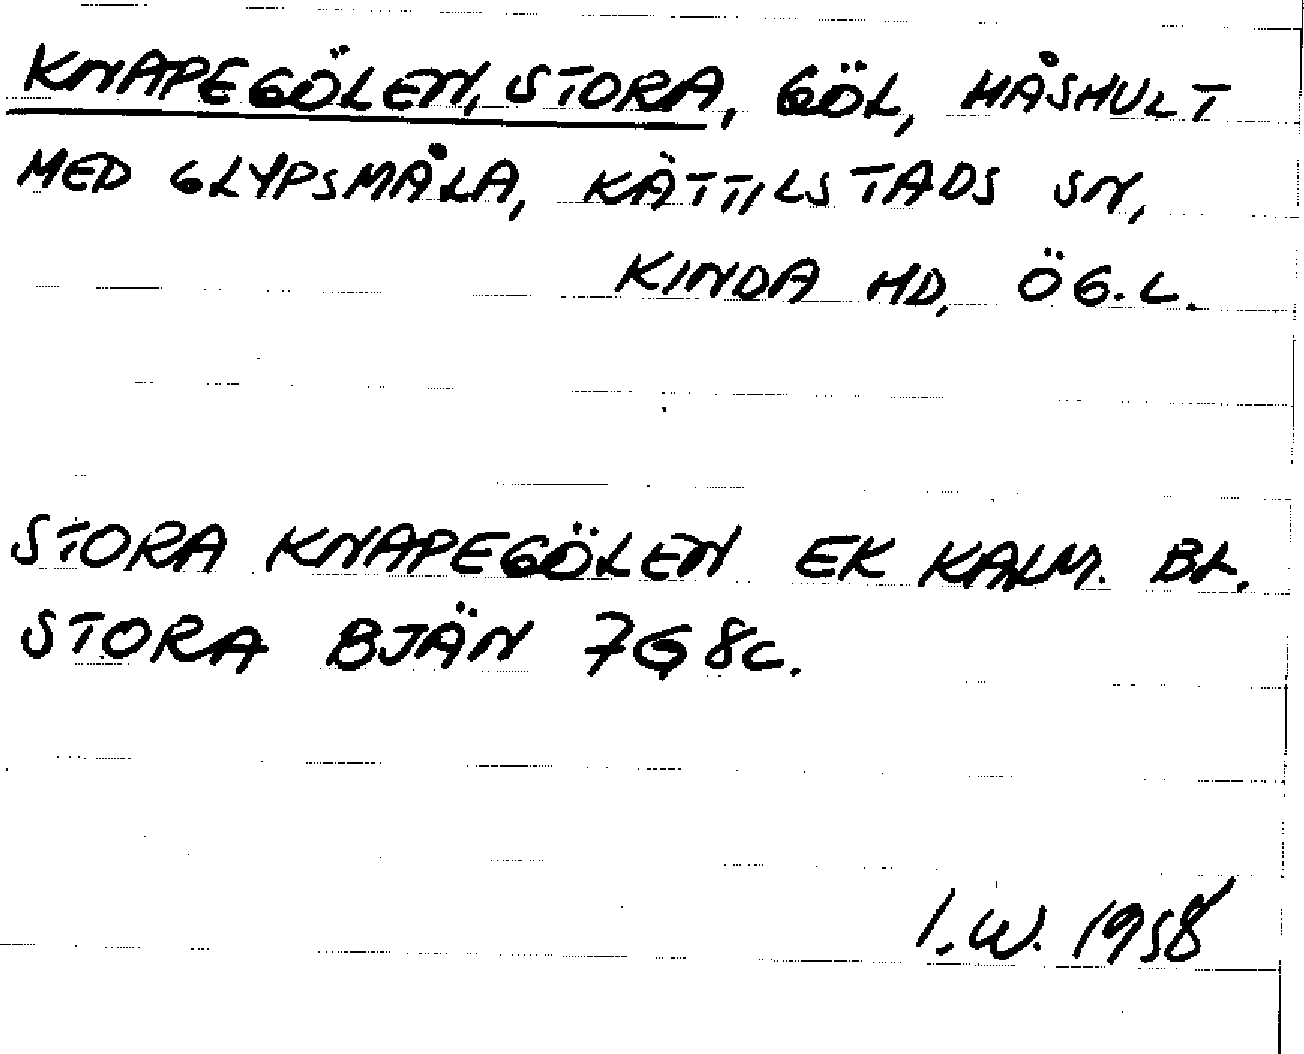 KNAPEGÖLEN, STORA, GÖL, HÅSHULT
MED GLYPSMÅLA, KÄTTILSTADS SN,
KINDA HD, ÖG.L.
STORA KNAPEGÖLEN EK KALM. BL.
STORA BJÄN 7G 8C.
I.W. 1958